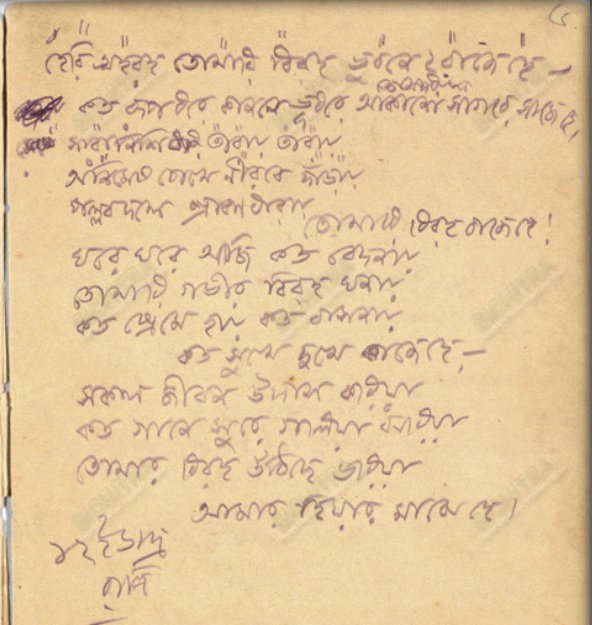 হেরি অহরহ তোমারি বিরহ ভুবনে ভুবনে রাজে হে—
কত রূপ ধরে কাননে ভূধরে আকাশে সাগরে সাজে হে।
সারানিশি ধরি তারায় তারায়
অনিমেষ চোখে নীরবে দাঁড়ায়
পল্লবদলে শ্রাবণ ধারায়
তোমারি বিরহ বাজে হে!
ঘরে ঘরে আজি কত বেদনায়
তোমারি গভীর বিরহ ঘনায়
কত প্রেমে হায় কত বাসনায়
কত সুখে দুখে কাজে হে,—
সকল জীবন উদাস করিয়া
কত গানে সুরে গলিয়া ঝরিয়া
তোমার বিরহ উঠিছে ভরিয়া
আমার হিয়ার মাঝে হে।
১২ই ভাদ্র
রাত্রি